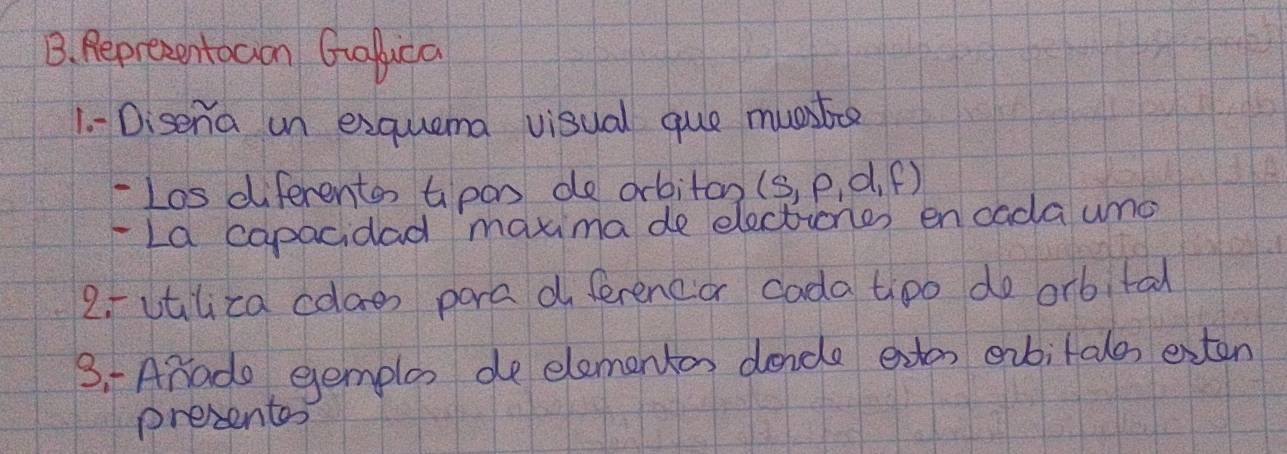 B. Representacion Grafica
1.- Diseña un esquema visual que muestre
- Los diferentes tipos de orbitas (s, p, d, f)
- La capacidad maxima de electrones en cada uno
2.- Utiliza colores para diferenciar cada tipo de orbital
3.- Añade ejemplos de elementos donde estos orbitales esten
presentes